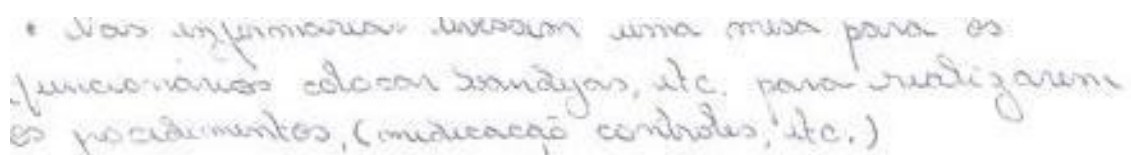 • Nas enfermarias tivessem uma mesa para os
funcionários colocar bandejas, etc. para realizarem
os procedimentos, (medicação controles, etc.)